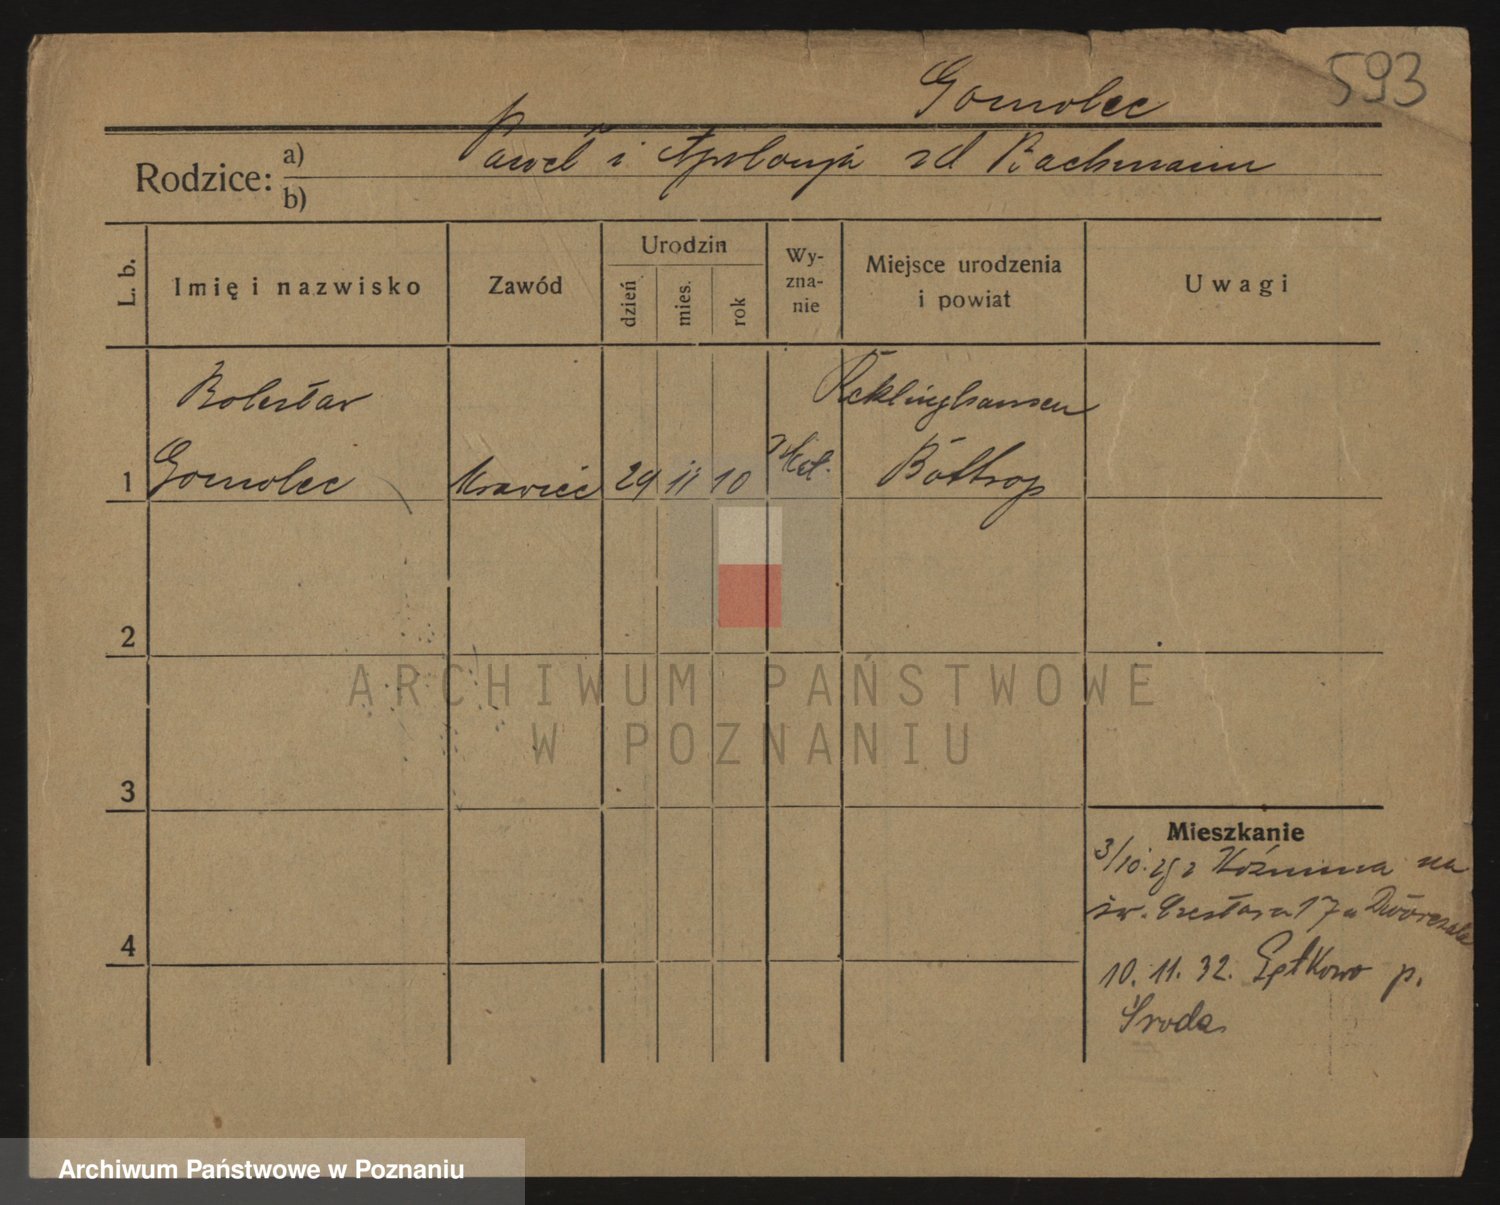 593
Gomolec
Rodzice: a) Paweł i Apolonja zd Rachmann
b)
L. b.
Imię i nazwisko
Zawód
Urodzin
dzień
mies.
rok
Wy-
zna-
nie
Miejsce urodzenia
i powiat
Uwagi
Bolesław
Gomolec
1
Krawiec
29
11
10
Kat.
Reklinghausen
Bottrop
2
3
4
Mieszkanie
3/10. 29 z Koźmina na
św. Czesława 17 u Dwórczaka
10. 11. 32. Pętkowo p.
Środa
ARCHIWUM PAŃSTWOWE
W POZNANIU
Archiwum Państwowe w Poznaniu